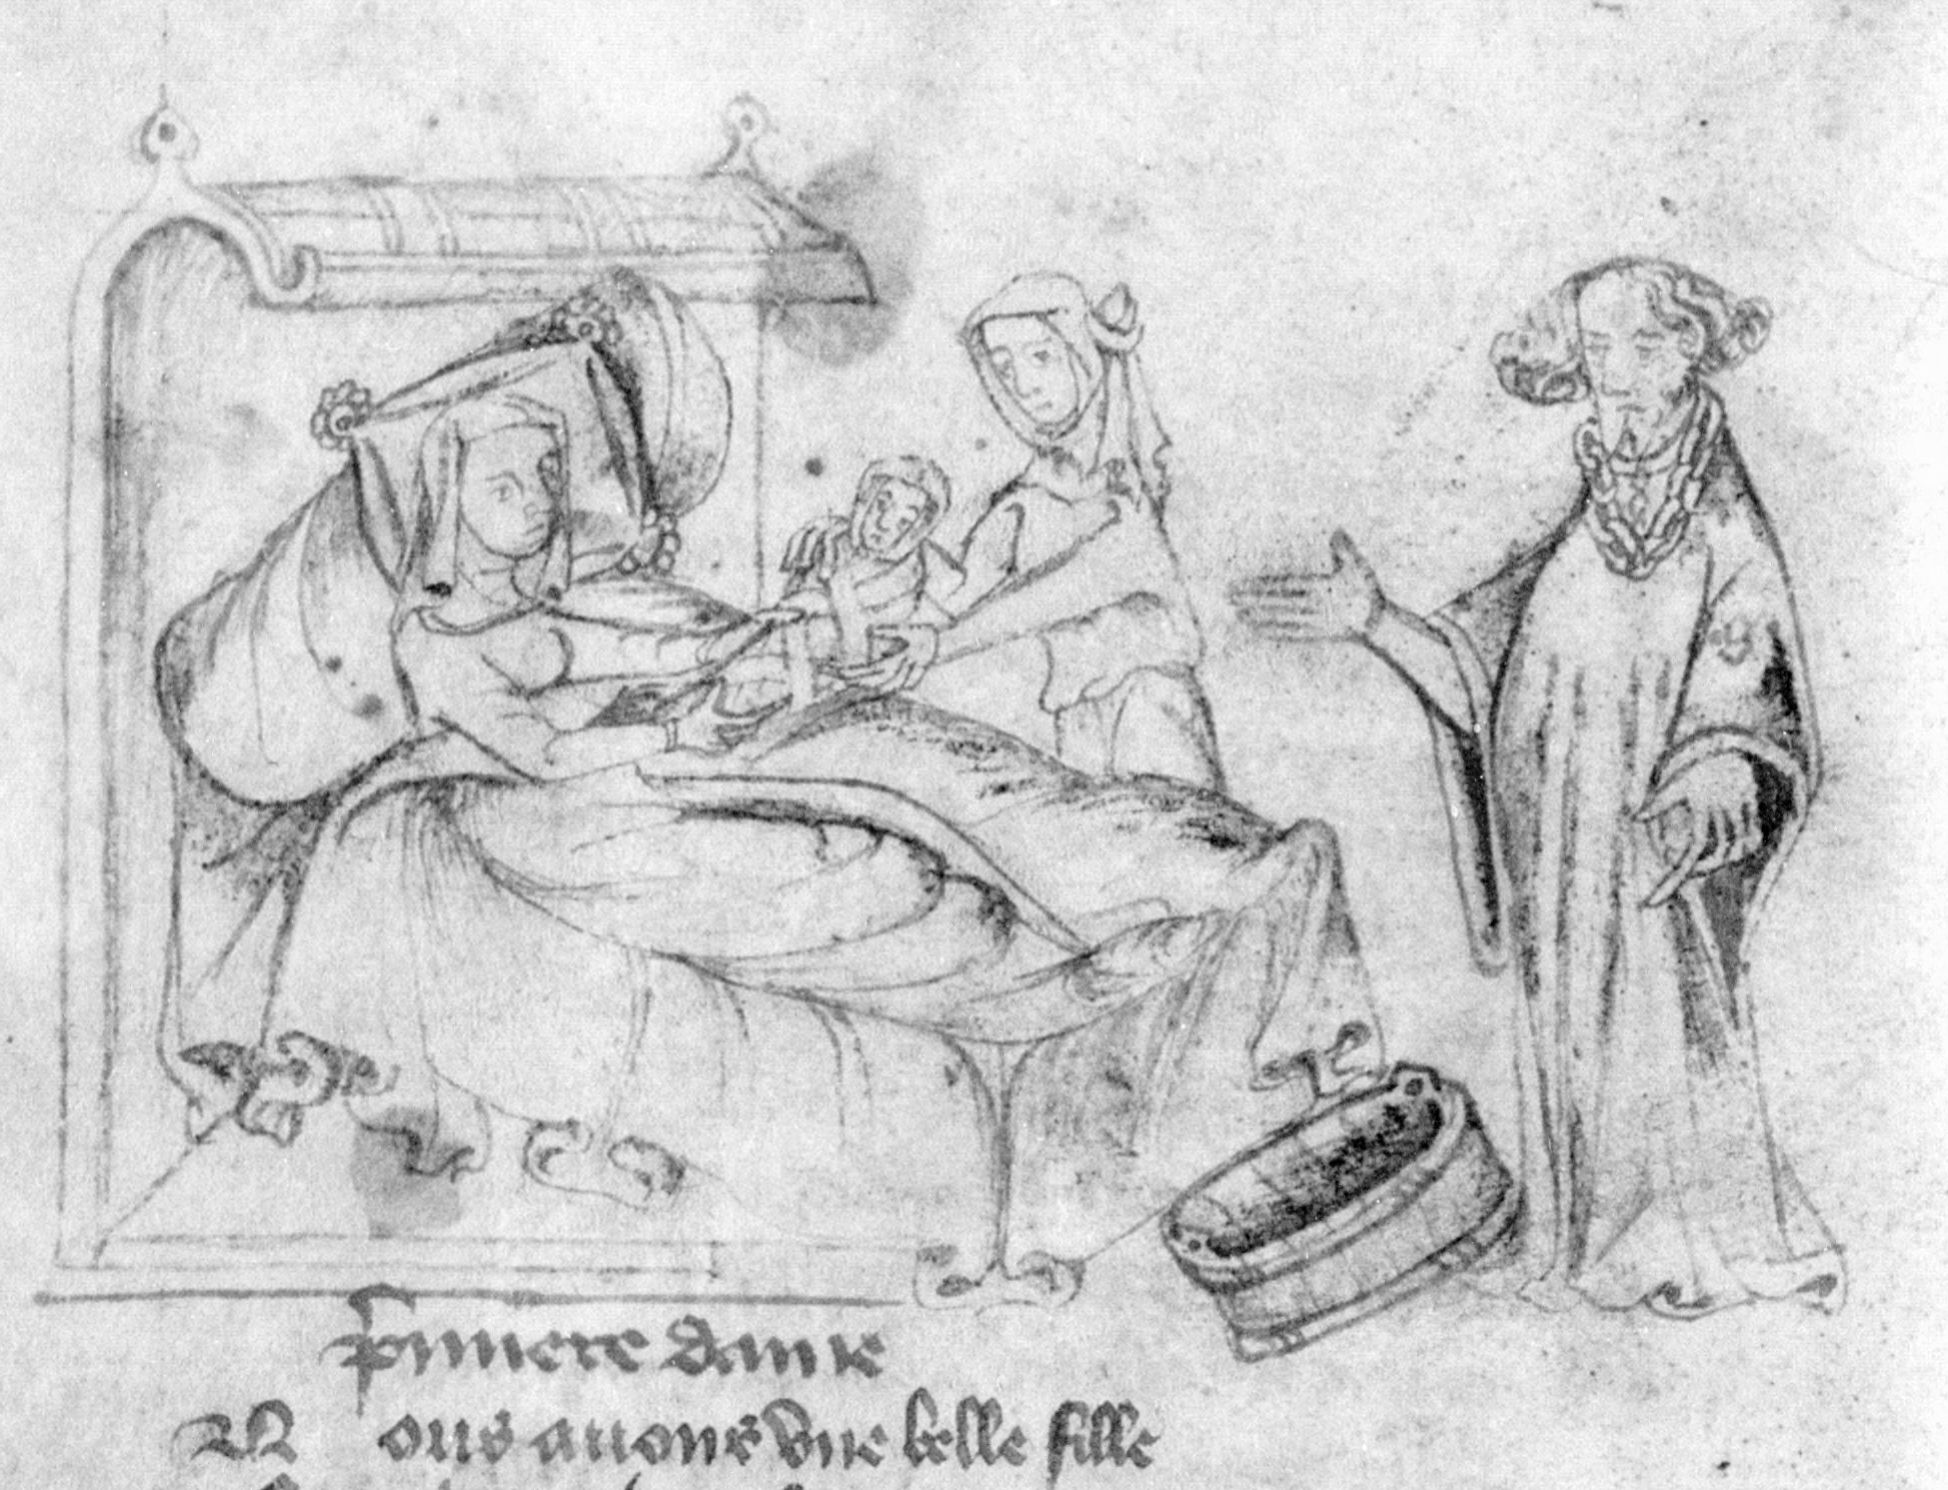 p̄miere dame
N ous auons vne belle fille